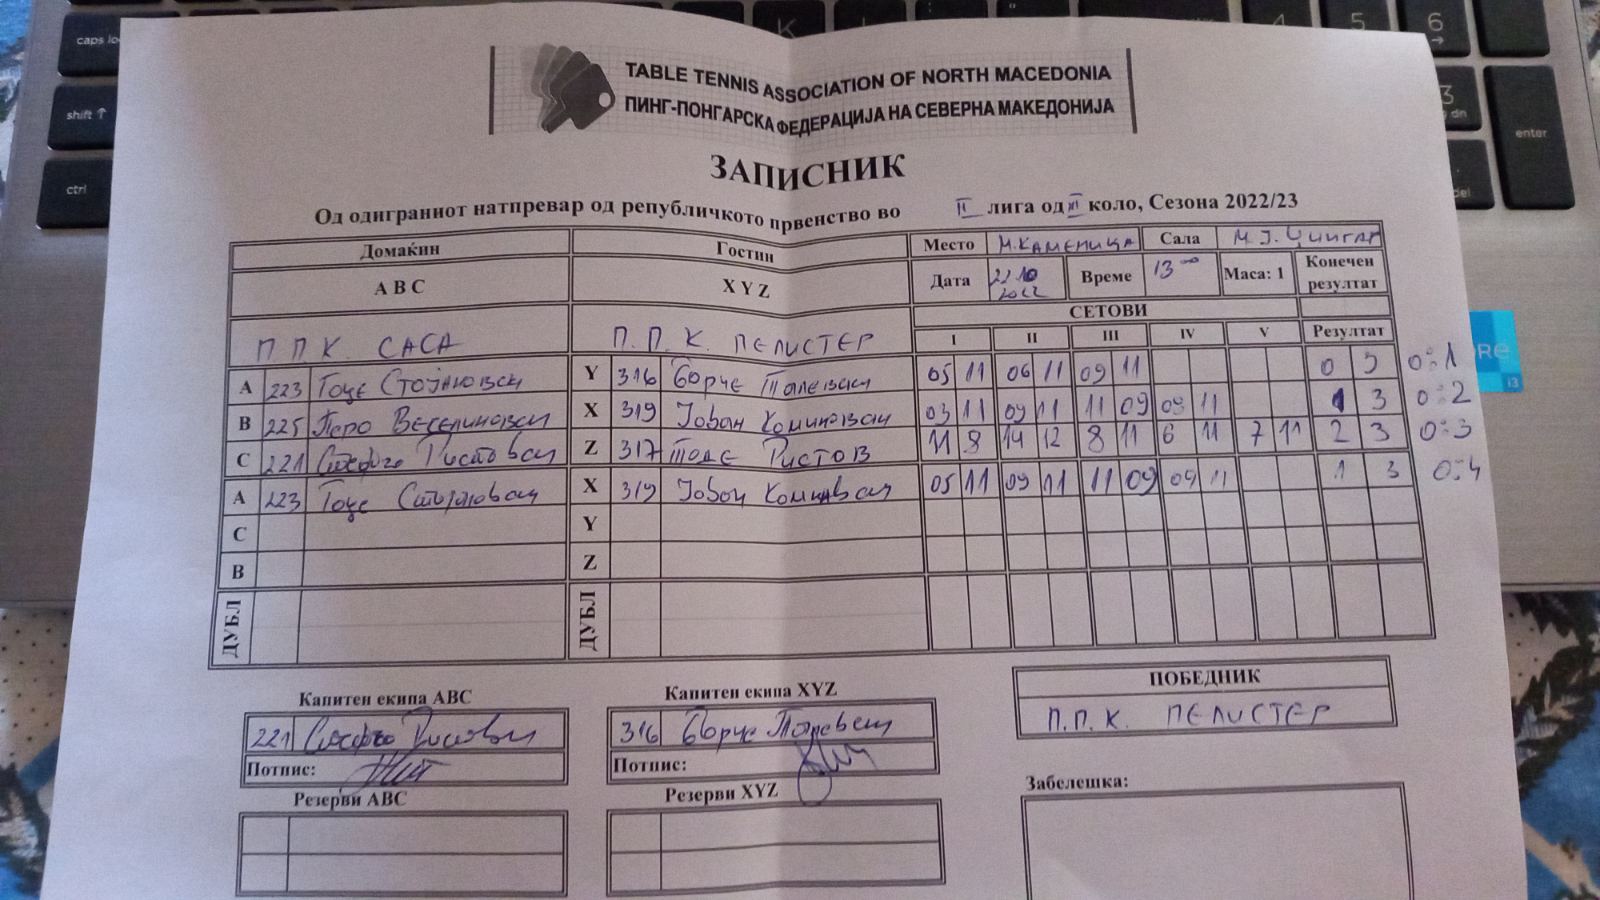 TABLE TENNIS ASSOCIATION OF NORTH MACEDONIA
ПИНГ-ПОНГАРСКА ФЕДЕРАЦИЈА НА СЕВЕРНА МАКЕДОНИЈА
ЗАПИСНИК
Од одиграниот натпревар од републичкото првенство во II лига од XI коло, Сезона 2022/23
Домаќин Гостин Место М.КАМЕНИЦА Сала М.Ј.
А В С X Y Z Дата 22.10 2022 Време 13 00 Маса: 1 Конечен резултат
П П К. САСА П.П.К. ПЕЛИСТЕР СЕТОВИ
I II III IV V Резултат
A 223 Гоце Стојановски Y 316 Борче Талевски 05 11 06 11 09 11 0 3 0:1
B 225 Перо Веселиновски X 319 Јован Коминовски 03 11 09 11 11 09 09 11 1 3 0:2
C 221 Ристовски Z 317 Тоде Ристов 11 8 14 12 8 11 6 11 7 11 2 3 0:3
A 223 Гоце Стојановски X 319 Јован Коминовски 05 11 09 11 11 09 09 11 1 3 0:4
C Y
B Z
ДУБЛ ДУБЛ
Капитен екипа ABC Капитен екипа XYZ ПОБЕДНИК
221 Ристовски 316 Борче Талевски П.П.К. ПЕЛИСТЕР
Потпис: Потпис:
Резерви ABC Резерви XYZ Забелешка:
caps lo
shift ↑
ctrl
K
4
5
6
3
dn
enter
del
i3